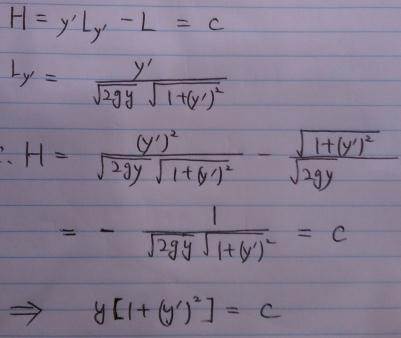 H = y'L_{y'} - L = c
L_{y'} = \frac{y'}{\sqrt{2gy} \sqrt{1+(y')^2}}
∴ H = \frac{(y')^2}{\sqrt{2gy} \sqrt{1+(y')^2}} - \frac{\sqrt{1+(y')^2}}{\sqrt{2gy}}
= - \frac{1}{\sqrt{2gy} \sqrt{1+(y')^2}} = c
⇒ y[1+(y')^2] = c